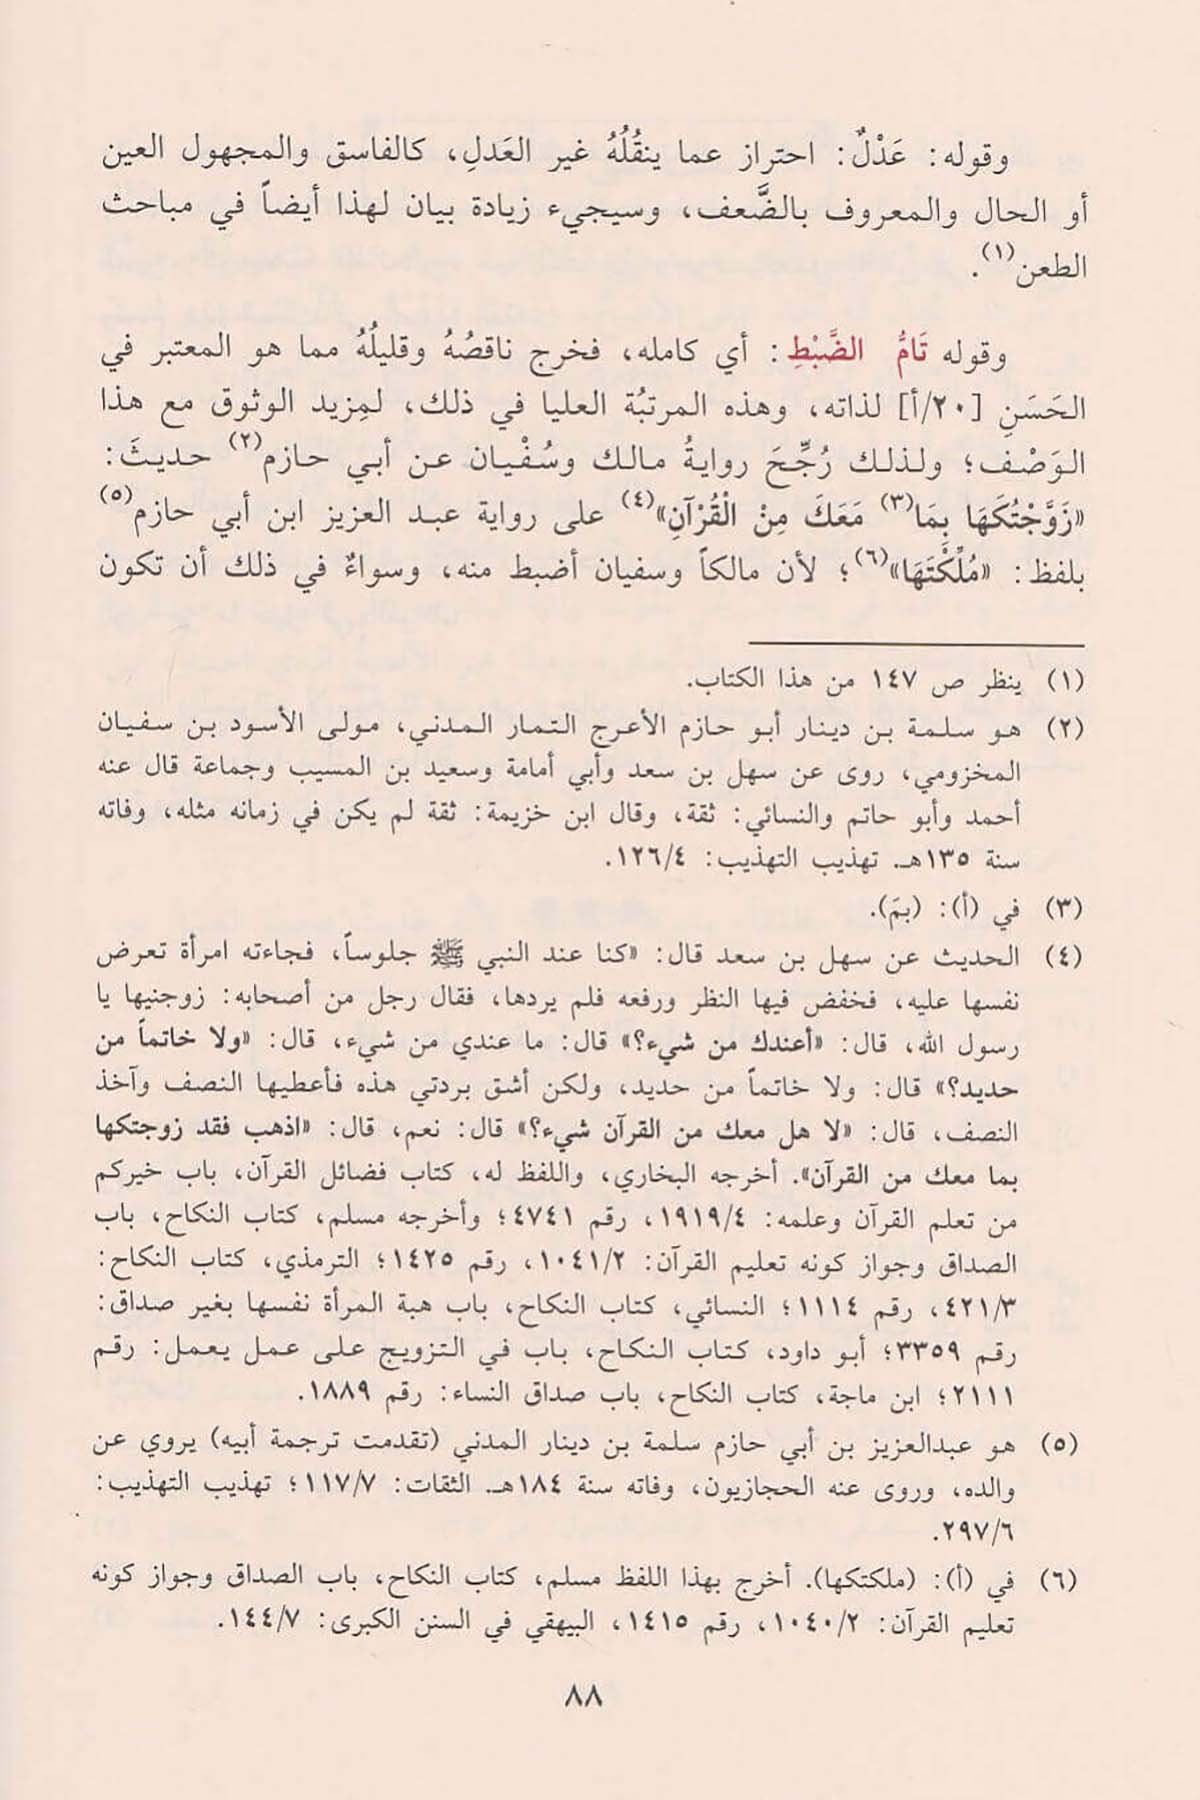 وقوله: عَدْلٌ: احتراز عما ينقُلُهُ غير العَدلِ، كالفاسق والمجهول العين
أو الحال والمعروف بالضَّعف، وسيجيء زيادة بيان لهذا أيضاً في مباحث
الطعن(١).
وقوله تَامُّ الضَّبْطِ: أي كامله، فخرج ناقصُهُ وقليلُهُ مما هو المعتبر في
الحَسَنِ [٢٠/أ] لذاته، وهذه المرتبُة العليا في ذلك، لمِزيد الوثوق مع هذا
الوَصْف؛ ولذلك رُجِّحَ روايةُ مالك وسُفْيان عن أبي حازم(٢) حديثَ:
«زَوَّجْتُكَهَا بِمَا(٣) مَعَكَ مِنْ الْقُرْآنِ»(٤) على رواية عبد العزيز ابن أبي حازم(٥)
بلفظ: «مُلِّكْتَهَا»(٦)؛ لأن مالكاً وسفيان أضبط منه، وسواءٌ في ذلك أن تكون
(١) ينظر ص ١٤٧ من هذا الكتاب.
(٢) هو سلمة بن دينار أبو حازم الأعرج التمار المدني، مولى الأسود بن سفيان
المخزومي، روى عن سهل بن سعد وأبي أمامة وسعيد بن المسيب وجماعة قال عنه
أحمد وأبو حاتم والنسائي: ثقة، وقال ابن خزيمة: ثقة لم يكن في زمانه مثله، وفاته
سنة ١٣٥هـ. تهذيب التهذيب: ١٢٦/٤.
(٣) في (أ): (بمَ).
(٤) الحديث عن سهل بن سعد قال: «كنا عند النبي ﷺ جلوساً، فجاءته امرأة تعرض
نفسها عليه، فخفض فيها النظر ورفعه فلم يردها، فقال رجل من أصحابه: زوجنيها يا
رسول الله، قال: «أعندك من شيء؟» قال: ما عندي من شيء، قال: «ولا خاتماً من
حديد؟» قال: ولا خاتماً من حديد، ولكن أشق بردتي هذه فأعطيها النصف وآخذ
النصف، قال: «لا هل معك من القرآن شيء؟» قال: نعم، قال: «اذهب فقد زوجتكها
بما معك من القرآن». أخرجه البخاري، واللفظ له، كتاب فضائل القرآن، باب خيركم
من تعلم القرآن وعلمه: ١٩١٩/٤، رقم ٤٧٤١؛ وأخرجه مسلم، كتاب النكاح، باب
الصداق وجواز كونه تعليم القرآن: ١٠٤١/٢، رقم ١٤٢٥؛ الترمذي، كتاب النكاح:
٤٢١/٣، رقم ١١١٤؛ النسائي، كتاب النكاح، باب هبة المرأة نفسها بغير صداق:
رقم ٣٣٥٩؛ أبو داود، كتاب النكاح، باب في التزويج على عمل يعمل: رقم
٢١١١؛ ابن ماجة، كتاب النكاح، باب صداق النساء: رقم ١٨٨٩.
(٥) هو عبدالعزيز بن أبي حازم سلمة بن دينار المدني (تقدمت ترجمة أبيه) يروي عن
والده، وروى عنه الحجازيون، وفاته سنة ١٨٤هـ. الثقات: ١١٧/٧؛ تهذيب التهذيب:
٢٩٧/٦.
(٦) في (أ): (ملكتكها). أخرج بهذا اللفظ مسلم، كتاب النكاح، باب الصداق وجواز كونه
تعليم القرآن: ١٠٤٠/٢، رقم ١٤١٥، البيهقي في السنن الكبرى: ١٤٤/٧.
٨٨